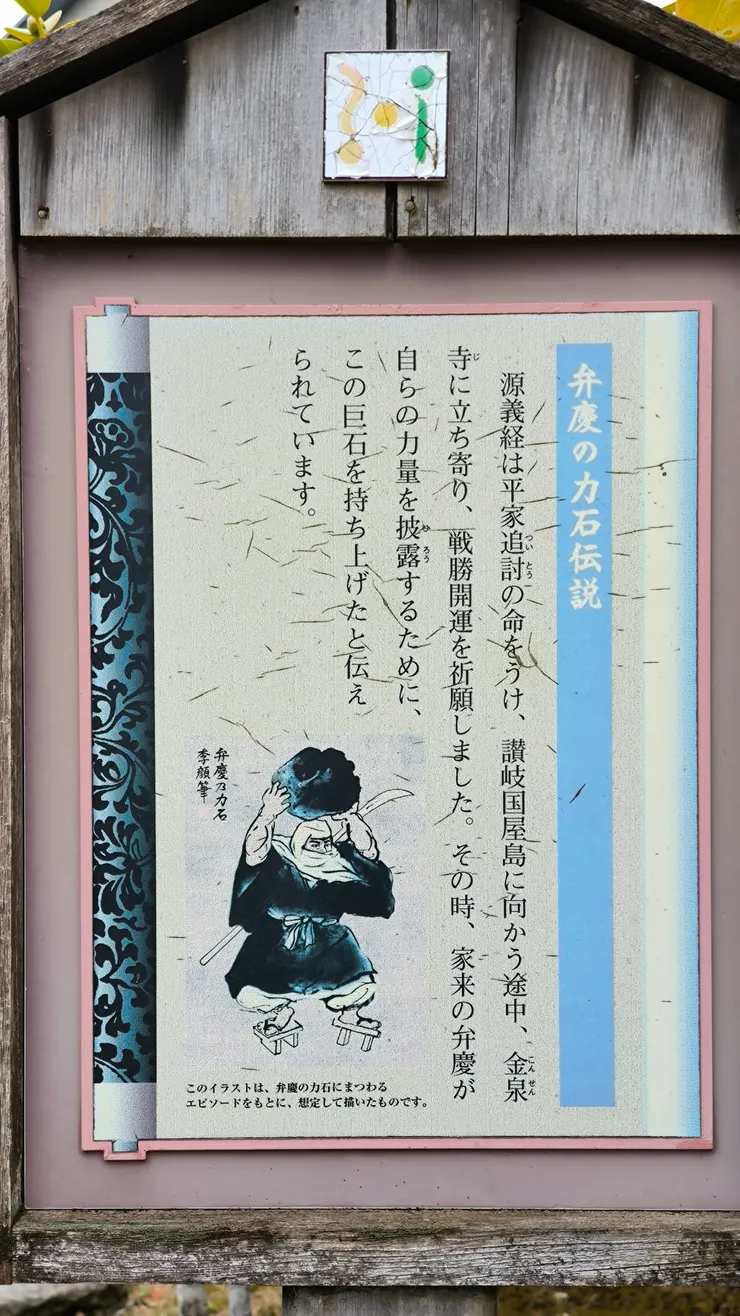 弁慶の力石伝説
源義経は平家追討の命をうけ、讃岐国屋島に向かう途中、金泉
ついとう
こんせん
寺に立ち寄り、戦勝開運を祈願しました。その時、家来の弁慶が
じ
自らの力量を披露するために、
ひろう
この巨石を持ち上げたと伝え
られています。
弁慶乃力石
李顔筆
このイラストは、弁慶の力石にまつわる
エピソードをもとに、想定して描いたものです。